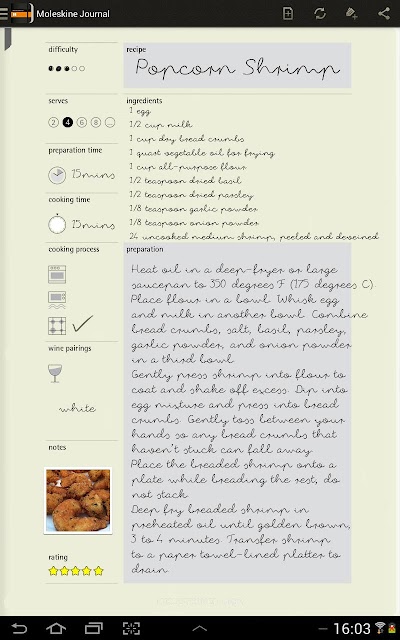 Moleskine Journal
difficulty
recipe
Popcorn Shrimp
serves
2 4 6 8 ...
ingredients
1 egg
1/2 cup milk
1 cup dry bread crumbs
1 quart vegetable oil for frying
1 cup all-purpose flour
1/2 teaspoon dried basil
1/2 teaspoon dried parsley
1/8 teaspoon garlic powder
1/8 teaspoon onion powder
24 uncooked medium shrimp, peeled and deveined
preparation time
15mins
cooking time
15mins
cooking process
wine pairings
white
notes
rating
preparation
Heat oil in a deep-fryer or large
saucepan to 350 degrees F (175 degrees C).
Place flour in a bowl. Whisk egg
and milk in another bowl. Combine
bread crumbs, salt, basil, parsley,
garlic powder, and onion powder
in a third bowl.
Gently press shrimp into flour to
coat and shake off excess. Dip into
egg mixture and press into bread
crumbs. Gently toss between your
hands so any bread crumbs that
haven't stuck can fall away.
Place the breaded shrimp onto a
plate while breading the rest; do
not stack.
Deep fry breaded shrimp in
preheated oil until golden brown,
3 to 4 minutes. Transfer shrimp
to a paper towel-lined platter to
drain.
16:03